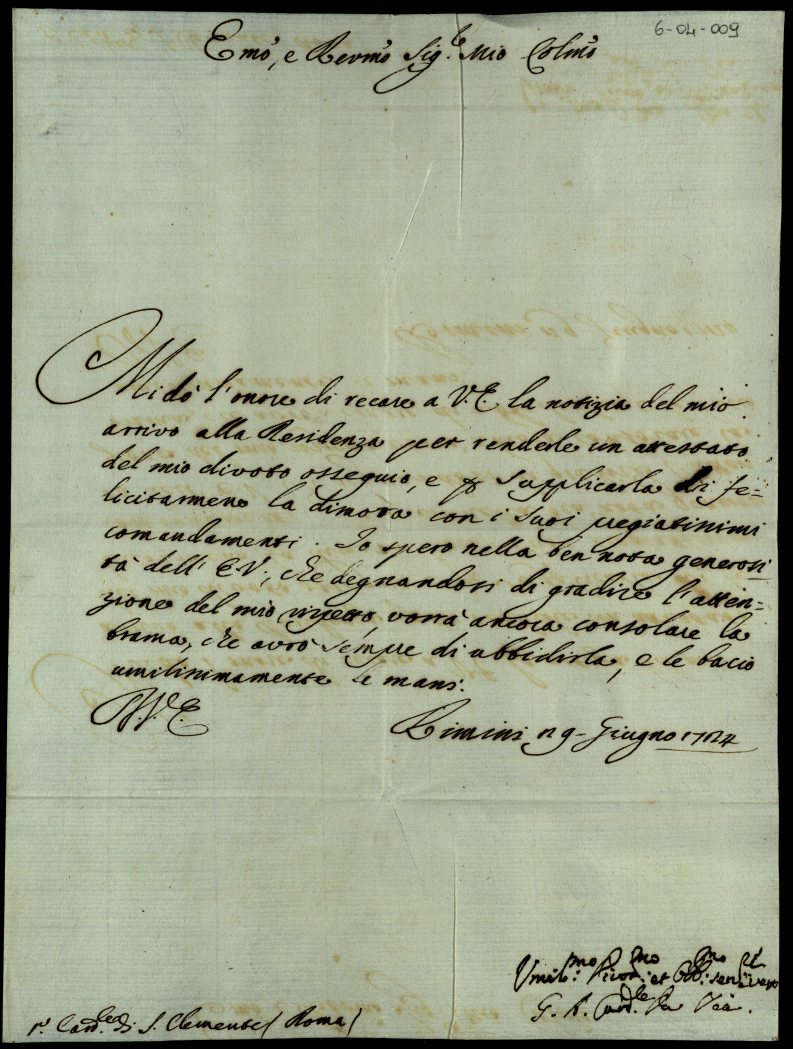 6-04-009
Emo, e Revmo Sig.re Mio Colmo
Mi dò l'onore di recare a V.E. la notizia del mio
arrivo alla Residenza per renderle un attestato
del mio divoto ossequio, e p supplicarla di fe=
licitarmene la dimora con i suoi pregiatissimi
comandamenti. Io spero nella ben nota generosi
tà dell' E.V., che degnandosi di gradire l'atten=
zione del mio rispetto, vorrà ancora consolare la
brama, che avrò sempre di ubbidirla, e le bacio
umilissimamente le mani.
D.V.E.
Rimini 9 Giugno 1724
Umil.mo Divot.mo et Obb.mo ser.re vero
G. A. Card.le Da Via.
r. Card.le di S. Clemente / Roma /